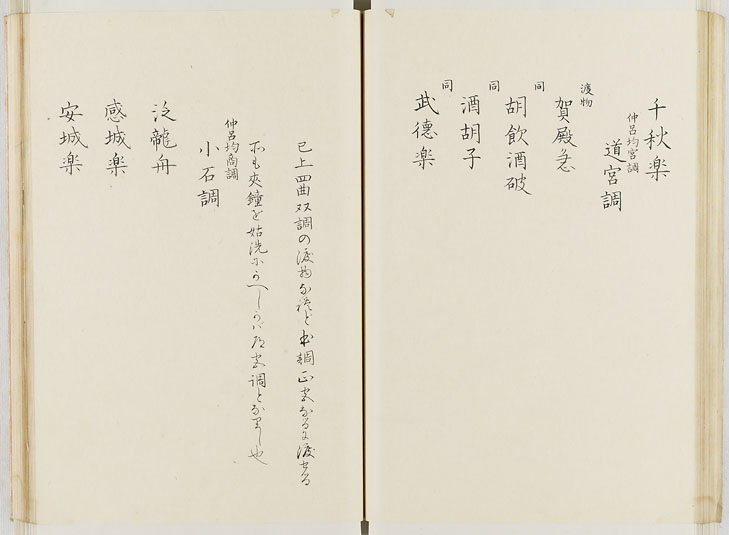 千秋楽
仲呂均宮調
道宮調
渡物
賀殿急
同
胡飲酒破
同
酒胡子
同
武徳楽
已上四曲双調の渡物なれど本調正宮なるに渡せる
故も夾鐘を姑洗にかへしかば道宮調となりし也
仲呂均商調
小石調
泛龍舟
感城楽
安城楽